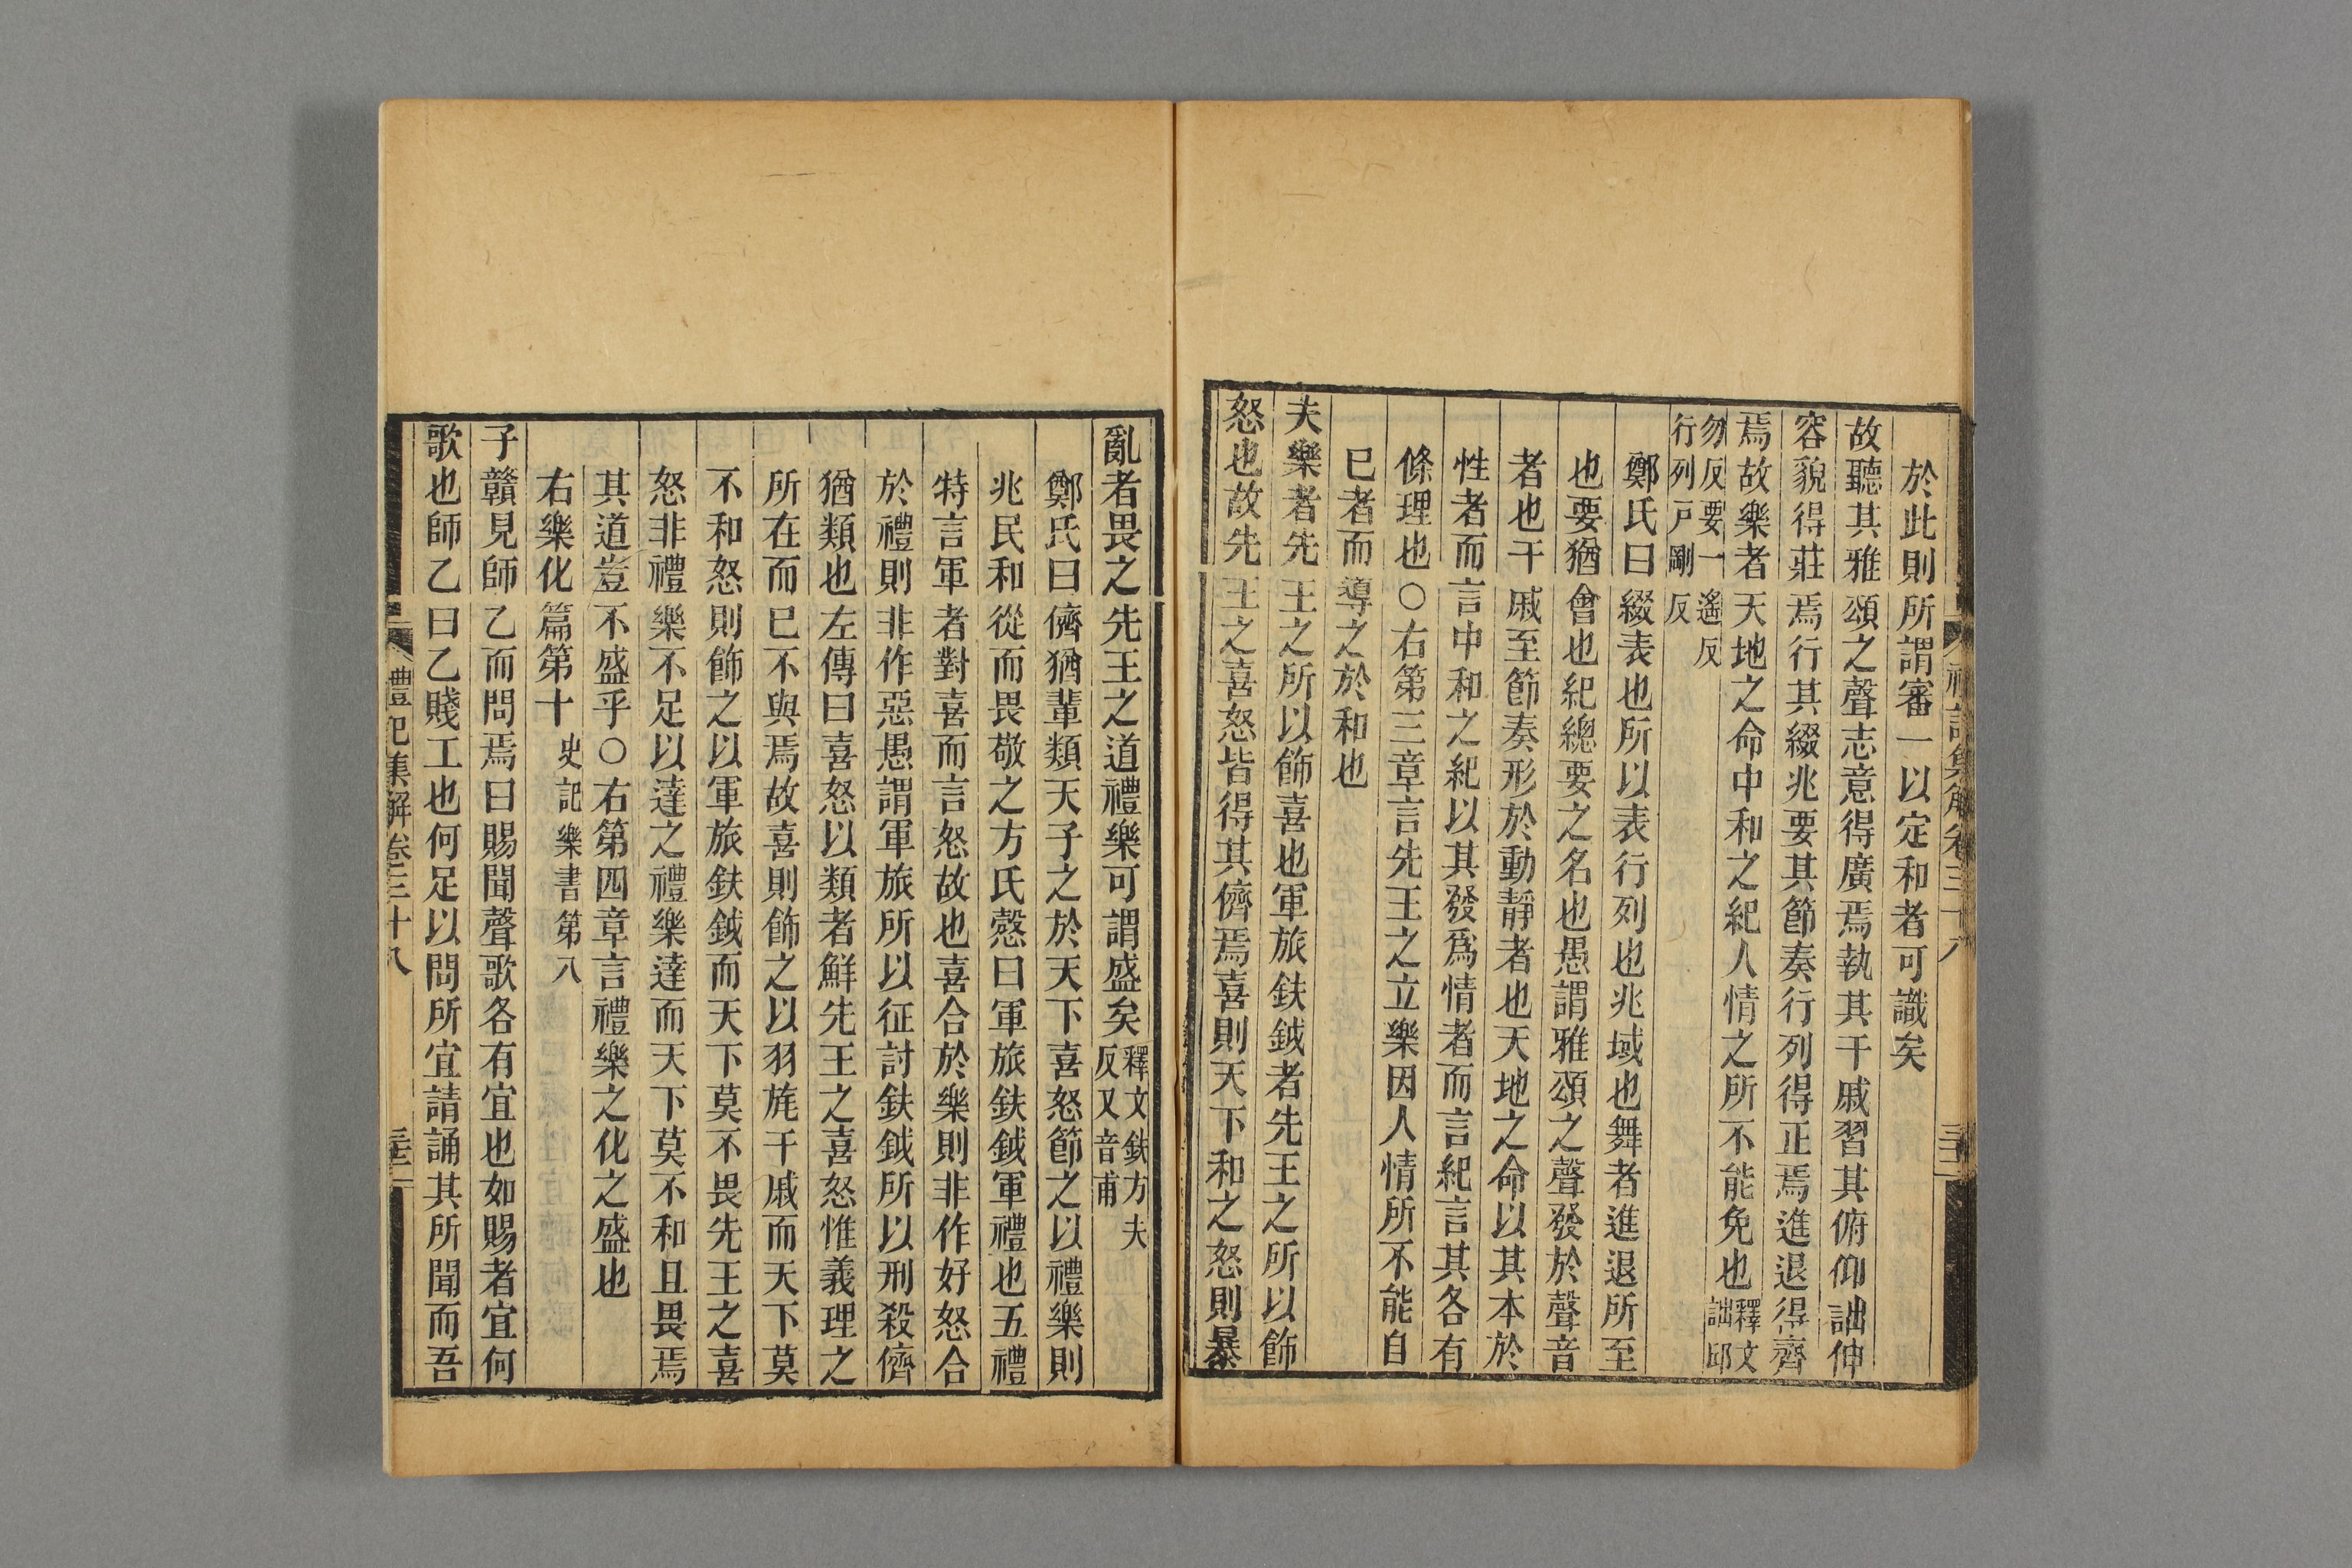 於此則所謂審一以定和者可識矣
故聽其雅頌之聲志意得廣焉執其干戚習其俯仰詘伸
容貌得莊焉行其綴兆要其節奏行列得正焉進退得齊
焉故樂者天地之命中和之紀人情之所不能免也釋文詘邱
勿反要一遙反
行列戸剛反
鄭氏曰綴表也所以表行列也兆域也舞者進退所至
也要猶會也紀總要之名也愚謂雅頌之聲發於聲音
者也干戚至節奏形於動靜者也天地之命以其本於
性者而言中和之紀以其發爲情者而言紀言其各有
條理也○右第三章言先王之立樂因人情所不能自
巳者而導之於和也
夫樂者先王之所以飾喜也軍旅鈇鉞者先王之所以飾
怒也故先王之喜怒皆得其儕焉喜則天下和之怒則暴
亂者畏之先王之道禮樂可謂盛矣釋文鈇方夫反又音甫
鄭氏曰儕猶輩類天子之於天下喜怒節之以禮樂則
兆民和從而畏敬之方氏慤曰軍旅鈇鉞軍禮也五禮
特言軍者對喜而言怒故也喜合於樂則非作好怒合
於禮則非作惡愚謂軍旅所以征討鈇鉞所以刑殺儕
猶類也左傳曰喜怒以類者鮮先王之喜怒惟義理之
所在而巳不與焉故喜則飾之以羽旄干戚而天下莫
不和怒則飾之以軍旅鈇鉞而天下莫不畏先王之喜
怒非禮樂不足以達之禮樂達而天下莫不和且畏焉
其道豈不盛乎○右第四章言禮樂之化之盛也
右樂化篇第十史記樂書第八
子贛見師乙而問焉曰賜聞聲歌各有宜也如賜者宜何
歌也師乙曰乙賤工也何足以問所宜請誦其所聞而吾
禮記集解卷三十八